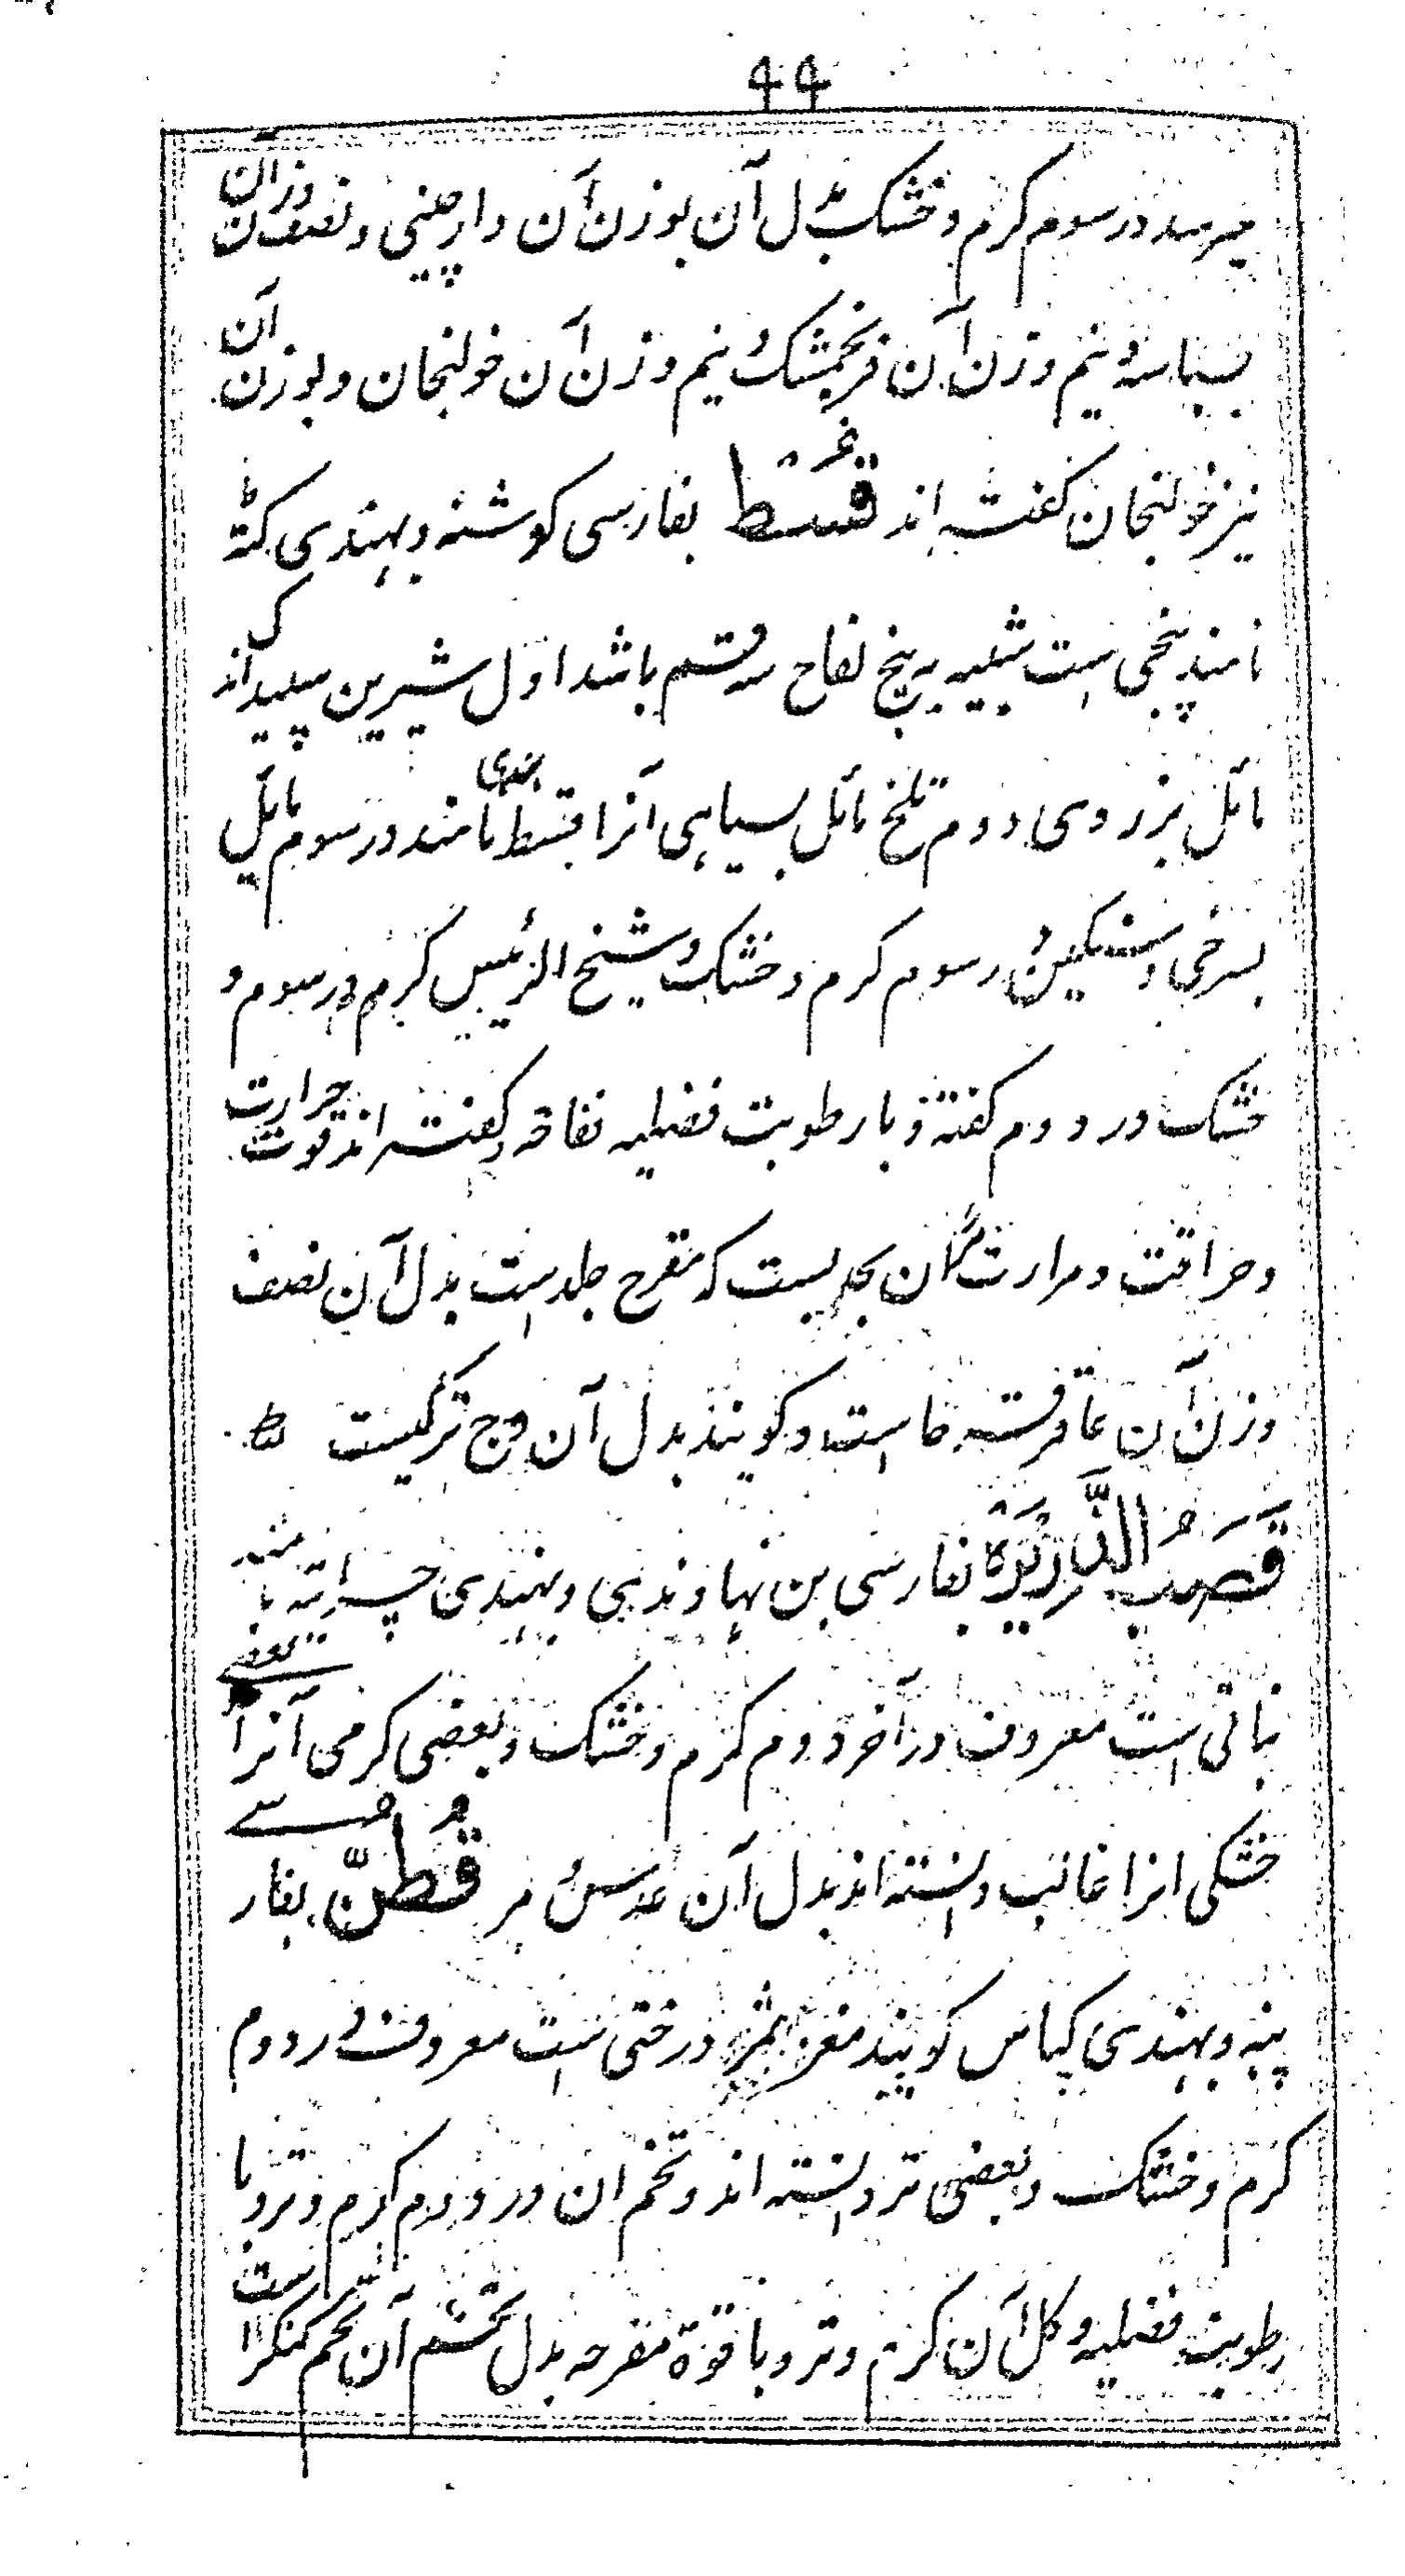 ۴۴
میرسد در سوم گرم و خشک بدل آن بوزن آن دارچینی و نصف وزن آن
بسباسه و نیم وزن آن فرنجمشک و نیم وزن آن خولنجان و بوزن آن
نیز خولنجان گفته اند قسط بفارسی کوشنه و بهندی کٹھ
نامند بیخی است شبیه به بیخ لفاح سه قسم باشد اول شیرین سپید اندک
مائل بزردی دوم تلخ مائل بسیاهی آنرا قسط هندی نامند در سوم مائل
بسرخی و سنگین در سوم گرم و خشک و شیخ الرئیس گرم در سوم و
خشک در دوم گفته و با رطوبت فضلیه نفاخه و گفته اند قوت حرارت
و حراقت و مرارت آن بحدیست که مقرح جلد است بدل آن نصف
وزن آن عاقرقرحا است و گویند بدل آن وج ترکیست
قَصَبُ الذَّرِیْرَة بفارسی بن نهاوندی و بهندی چرایته نامند
نباتی است معروف در آخر دوم گرم و خشک و بعضی گرمی آنرا و بعضے
خشکی انرا غالب دانسته اند بدل آن عدس مر قُطنّ بفارسے
پنبه و بهندی کپاس گویند مغز ثمر درختی است معروف در دوم
گرم و خشک و بعضی تر دانسته اند و تخم ان در دوم گرم و تر و با
رطوبت فضلیه و کل آن گرم و تر و با قوة مفرحه بدل تخم آن تخم کنگر است